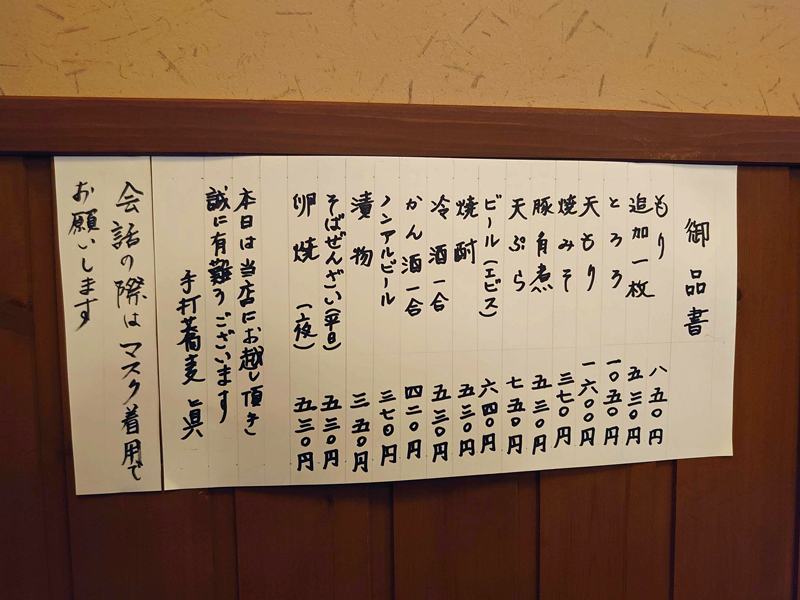 御品書
もり 八五〇円
追加一枚 五三〇円
とろろ 一〇五〇円
天もり 一六〇〇円
焼みそ 三七〇円
豚角煮 五三〇円
天ぷら 七五〇円
ビール(エビス) 六四〇円
焼酎 五三〇円
冷酒一合 五三〇円
かん酒一合 四二〇円
ノンアルビール 三七〇円
漬物 三五〇円
そばぜんざい(平日) 五三〇円
卵焼(夜) 五三〇円
本日は当店にお越し頂き
誠に有難うございます
手打蕎麦
会話の際はマスク着用で
お願いします